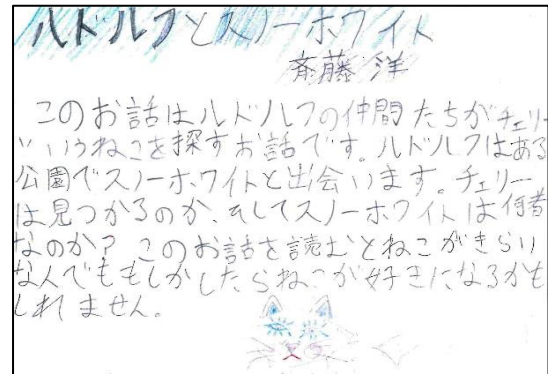 ルドルフとスノーホワイト
斉藤 洋
このお話はルドルフの仲間たちがチェリー
というねこを探すお話です。ルドルフはある
公園でスノーホワイトと出会います。チェリー
は見つかるのか、そしてスノーホワイトは何者
なのか？このお話を読むとねこがきらい
なんでももしかしたらねこが好きになるかも
しれません。